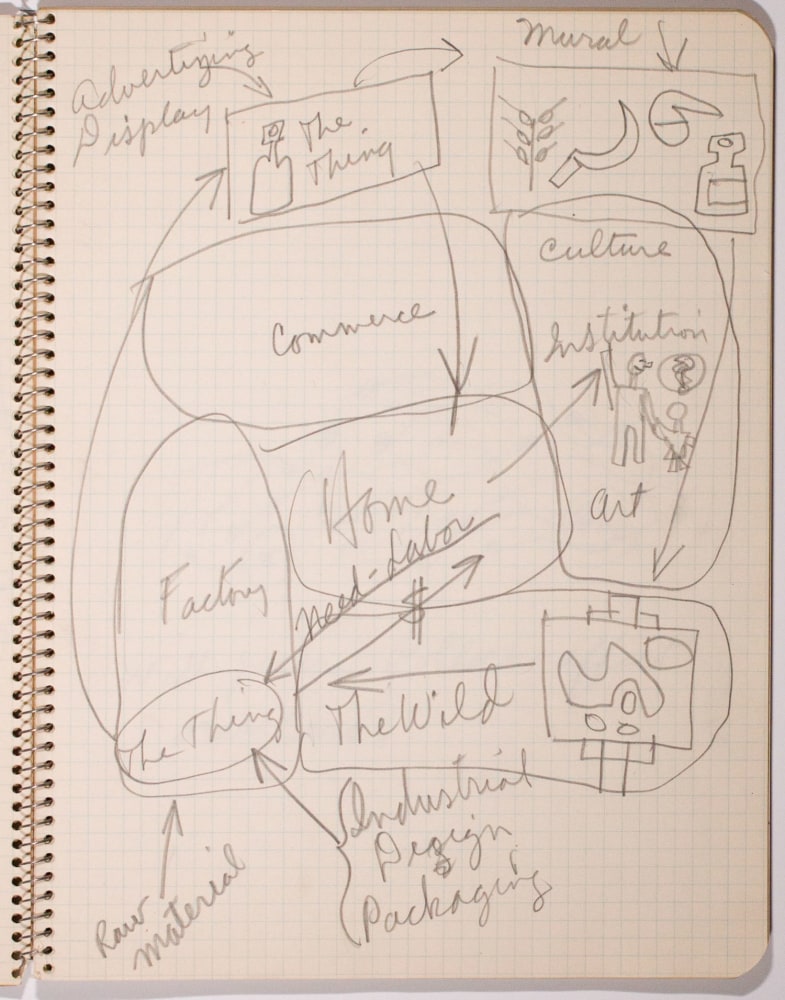 Mural
Advertizing
Display
The
Thing
Culture
Commerce
Institution
Home
Art
Need-Labor
Factory
$
The Wild
The Thing
Industrial
Dezign
Packaging
Raw
Material